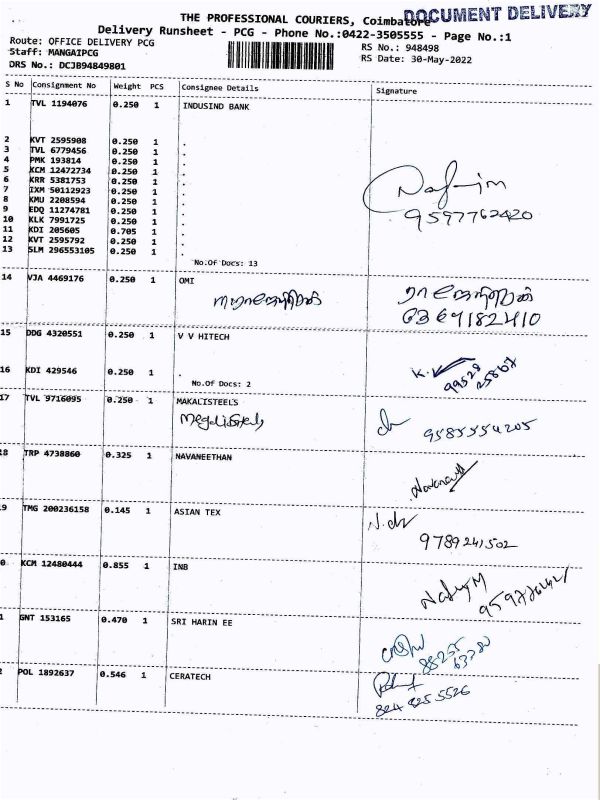 THE PROFESSIONAL COURIERS, Coimbatore
DOCUMENT DELIVERY
Delivery Runsheet - PCG - Phone No.:0422-3505555 - Page No.:1
Route: OFFICE DELIVERY PCG
RS No.: 948498
Staff: MANGAIPCG
RS Date: 30-May-2022
DRS No.: DCJB94849801
S No Consignment No Weight PCS Consignee Details Signature
1 TVL 1194076 0.250 1 INDUSIND BANK
2 KVT 2595908 0.250 1 .
3 TVL 6779456 0.250 1 .
4 PMK 193814 0.250 1 .
5 KCM 12472734 0.250 1 .
6 KRR 5381753 0.250 1 .
7 IXM 50112923 0.250 1 .
8 KMU 2208594 0.250 1 .
9 EDQ 11274781 0.250 1 .
10 KLK 7991725 0.250 1 .
11 KDI 205605 0.705 1 .
12 KVT 2595792 0.250 1 .
13 SLM 296553105 0.250 1 .
9597762420
No.Of Docs: 13
14 VJA 4469176 0.250 1 OMI
6369182410
15 DDG 4320551 0.250 1 V V HITECH
16 KDI 429546 0.250 1 .
No.Of Docs: 2
17 TVL 9716095 0.250 1 MAKALISTEELS
9585554205
8 TRP 4738860 0.325 1 NAVANEETHAN
9 TMG 200236158 0.145 1 ASIAN TEX
9789241502
0 KCM 12480444 0.855 1 INB
1 GNT 153165 0.470 1 SRI HARIN EE
88255
63780
2 POL 1892637 0.546 1 CERATECH
824 825 5526